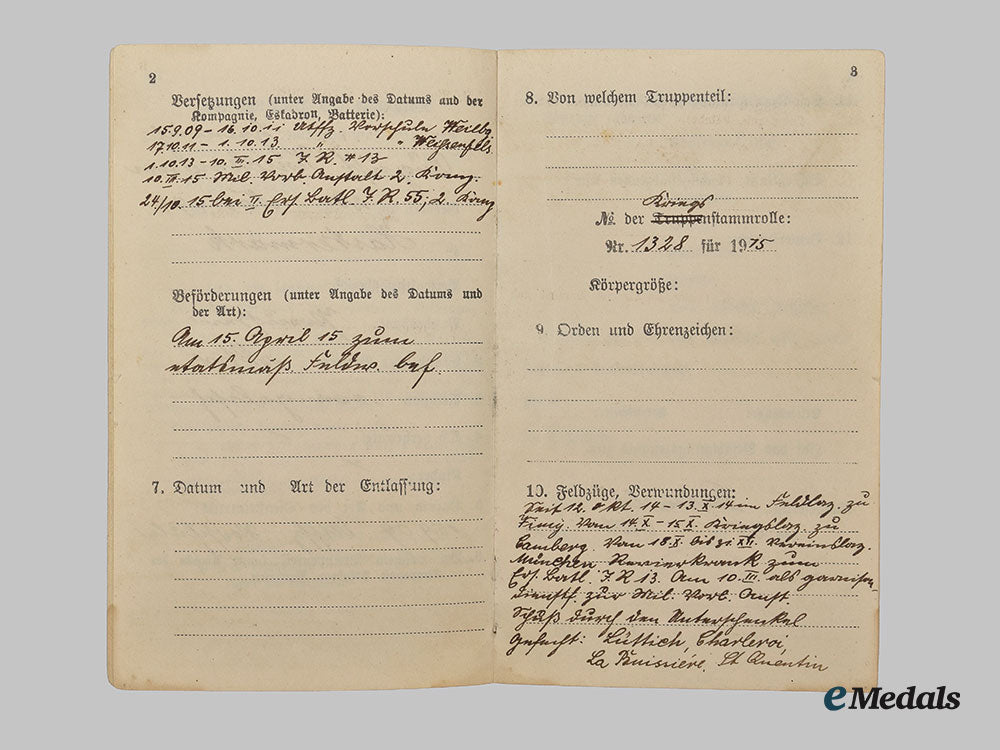 2
Versetzungen (unter Angabe des Datums und der
Kompagnie, Eskadron, Batterie):
15.9.09 – 16.10.11 Utffz. Vorschule Weilbg.
17.10.11 – 1.10.13 „ „ Weißenfels
1.10.13 – 10.III.15 J.R. # 13
10.III.15 Mil. Vorb. Anstalt 2. Komp.
24/10.15 bei II. Ers. Batl. J.R. 55, 2. Komp
Beförderungen (unter Angabe des Datums und
der Art):
Am 15. April 15 zum
etatsmäß. Feldw. bef.
7. Datum und Art der Entlassung:
3
8. Von welchem Truppenteil:
Kriegs
№ der Truppenstammrolle:
Nr. 1328 für 1915
Körpergröße:
9. Orden und Ehrenzeichen:
10. Feldzüge, Verwundungen:
Seit 12. Okt. 14 – 13.X.14 im Feldlaz. zu
Von 14.X – 15.X. Kriegslaz. zu
Von 18.X. bis 31.XII. Vereinslaz.
München Revierkrank zum
Ers. Batl. J.R 13. Am 10.III. als garnison-
dienstf. zur Mil. Vorb. Anst.
Schuß durch den Unterschenkel
Gefecht: Lüttich, Charleroi,
La St Quentin
eMedals